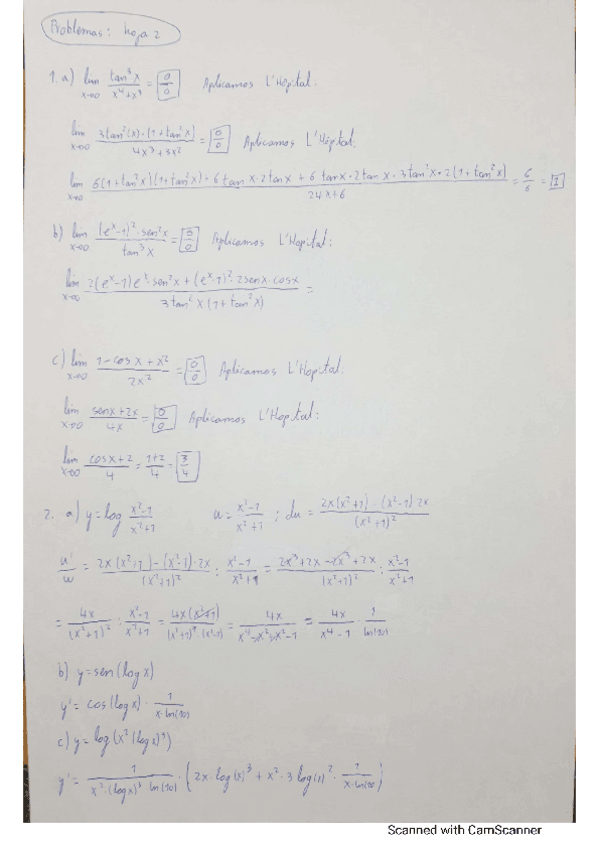 Problemas: hoja 2
1. a) lim x→0 tan³x / x⁴+x³ = 0/0 Aplicamos L'Hôpital:
lim x→0 3tan²(x)·(1+tan²x) / 4x³+3x² = 0/0 Aplicamos L'Hôpital:
lim x→0 6(1+tan²x)(1+tan²x)+6tanx·2tanx+6tanx·2tanx+3tan²x·2(1+tan²x) / 24x+6 = 6/6 = 1
b) lim x→0 (eˣ-1)²·sen²x / tan³x = 0/0 Aplicamos L'Hopital:
lim x→0 2(eˣ-1)eˣ·sen²x+(eˣ-1)²·2senx·cosx / 3tan²x(1+tan²x) =
c) lim x→0 1-cosx+x² / 2x² = 0/0 Aplicamos L'Hopital:
lim x→0 senx+2x / 4x = 0/0 Aplicamos L'Hopital:
lim x→0 cosx+2 / 4 = 1+2 / 4 = 3/4
2. a) y=log x²-1 / x²+1 u= x²-1 / x²+1 ; du = 2x(x²+1)-(x²-1)·2x / (x²+1)²
u'/u = 2x(x²+1)-(x²-1)·2x / (x²+1)² : x²-1 / x²+1 = 2x³+2x-2x³+2x / (x²+1)² : x²-1 / x²+1
= 4x / (x²+1)² : x²-1 / x²+1 = 4x(x²+1) / (x²+1)²·(x²-1) = 4x / x⁴-x²+x²-1 = 4x / x⁴-1 · 1 / ln(10)
b) y=sen(logx)
y' = cos(logx)· 1 / x·ln(10)
c) y=log(x²(logx)³)
y' = 1 / x²·(logx)³·ln(10) · (2x·log(x)³+x²·3log(x)²· 1 / x·ln(10))
Scanned with CamScanner